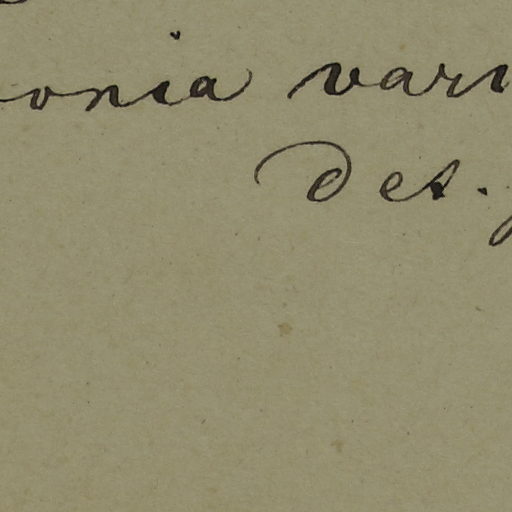 onia vari
Det.